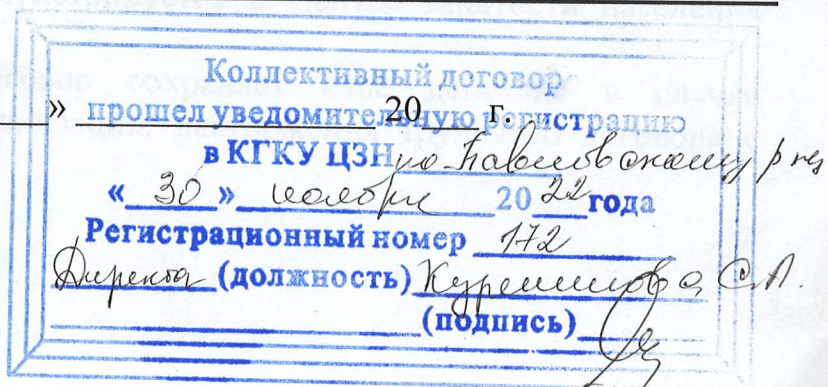 Коллективный договор
» прошел уведомительную регистрацию 20 г.
в КГКУ ЦЗН по Павловскому р-ну
«30» ноября 2022 года
Регистрационный номер 172
Директор (должность) С.А.
(подпись)